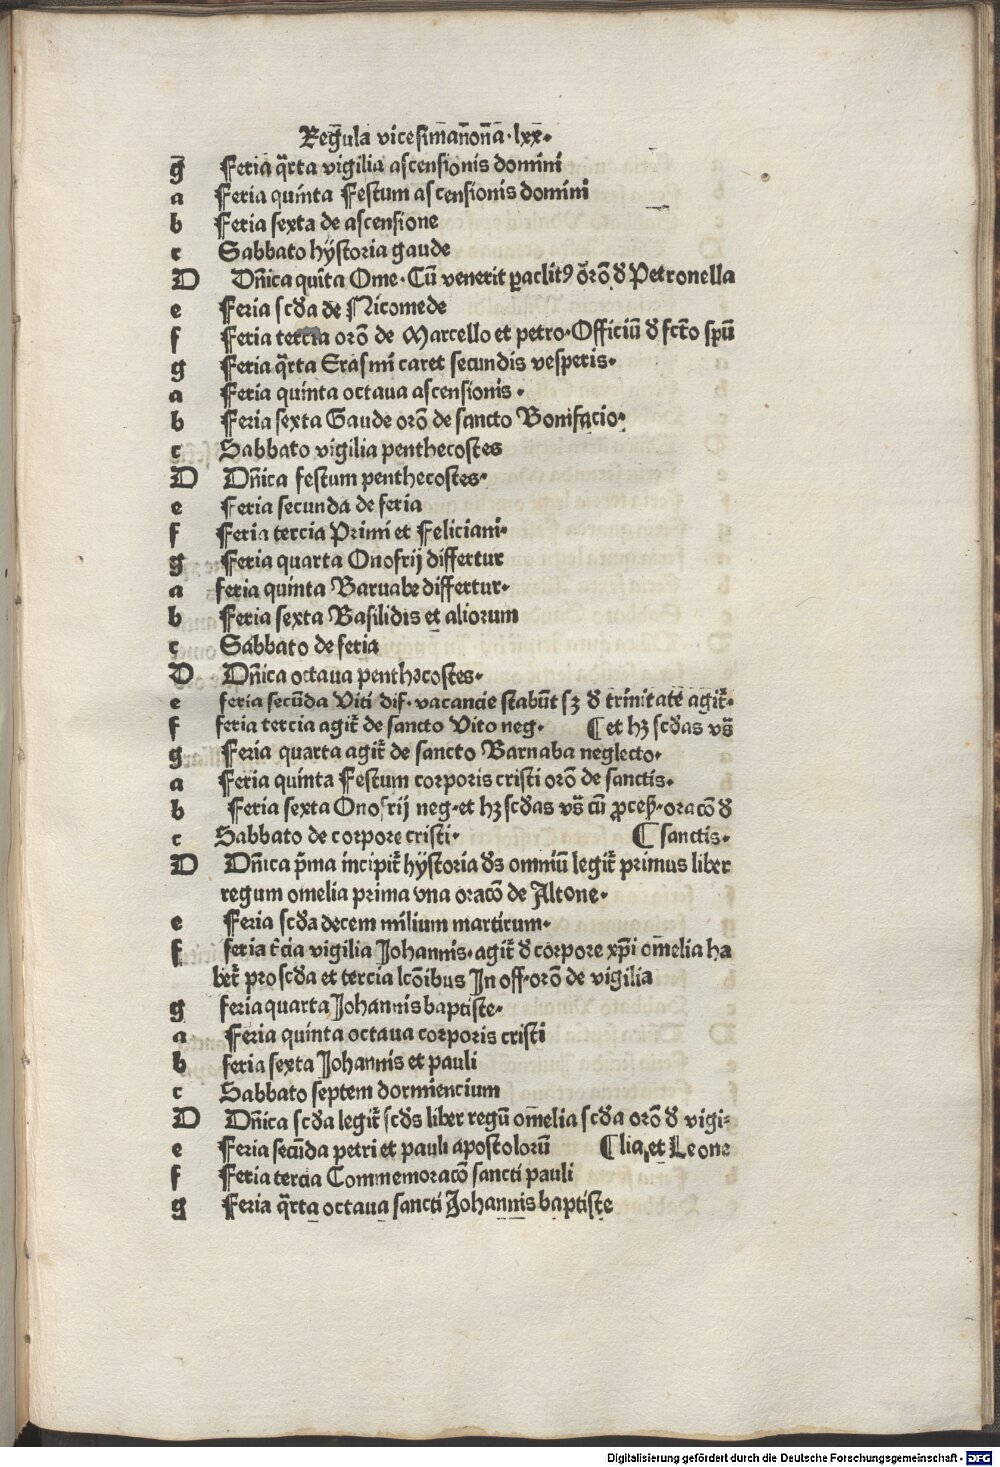 Reg̅ula vicesiman̅on̅a · lxx·
g̅ Feria q̅rta vigilia ascensionis domini
a Feria quinta Festum ascensionis domini
b Feria sexta de ascensione
c Sabbato hystoria gaude
D Dn̅ica quĩta Ome· Cũ venerit ꝑaclitꝰ õrõ ð Petronella
e Feria scða de Nicomede
f Feria tercia orõ de Marcello et petro· Officiũ ð sc̃to spũ
g Feria q̅rta Erasmi caret secundis vesperis·
a Feria quinta octaua ascensionis ·
b Feria sexta Gaude orõ de sancto Bonifacio·
c Sabbato vigilia penthecostes
D Dn̅ica festum penthecostes·
e Feria secunda de feria
f Feria tercia Primi et Feliciani·
g Feria quarta Onofrij differtur
a feria quinta Barnabe differtur·
b Feria sexta Basilidis et aliorum
c Sabbato de feria
D Dn̅ica octaua penthecostes·
e feria secũda Viti dif· vacancie stabũt sꝫ ð trinitate agit̃·
f feria tercia agit̃ de sancto Vito neg· ⸿ et hꝫ scðas vs̃
g Feria quarta agit̃ de sancto Barnaba neglecto·
a Feria quinta Festum corporis cristi orõ de sanctis·
b Feria sexta Onofrij neg· et hꝫ scðas vs̃ cũ ꝓceß· oracõ ð
c Sabbato de corpore cristi· ⸿ sanctis·
D Dn̅ica p̃ma incipit̃ hystoria ðs omniũ legit̃ primus liber
regum omelia prima vna oracõ de Altone·
e Feria scða decem milium martirum·
f feria t̃cia vigilia Johannis· agit̃ ð corpore xp̃i om̅elia ha
bet̃ pro scða et tercia lcõibus In off· orõ de vigilia
g feria quarta Johannis baptiste·
a Feria quinta octaua corporis cristi
b feria sexta Johannis et pauli
c Sabbato septem dormiencium
D Dn̅ica scða legit̃ scðs liber regũ om̅elia scða orõ ð vigi⸗
e Feria secũda petri et pauli apostolorũ ⸿ lia, et Leone
f Feria tercia Commemoracõ sancti pauli
g Feria q̅rta octaua sancti Johannis baptiste
Digitalisierung gefördert durch die Deutsche Forschungsgemeinschaft - DFG